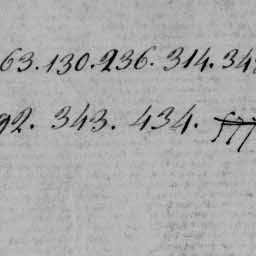 63. 130. 236. 314. 34
92. 343. 434.